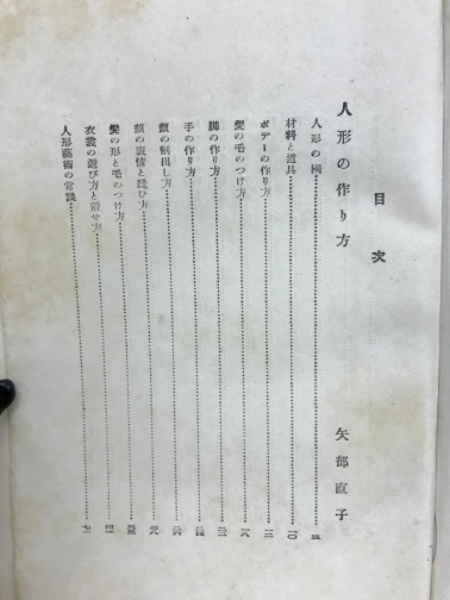 目次
人形の作り方 矢部直子
人形の國 五
材料と道具 一〇
ボデーの作り方 一三
髪の毛のつけ方 一八
脚の作り方 二二
手の作り方 二四
顔の刳出し方 二六
顔の表情と縫ひ方 二八
髪の形と毛のつけ方
衣裳の選び方と着せ方
人形藝術の常識